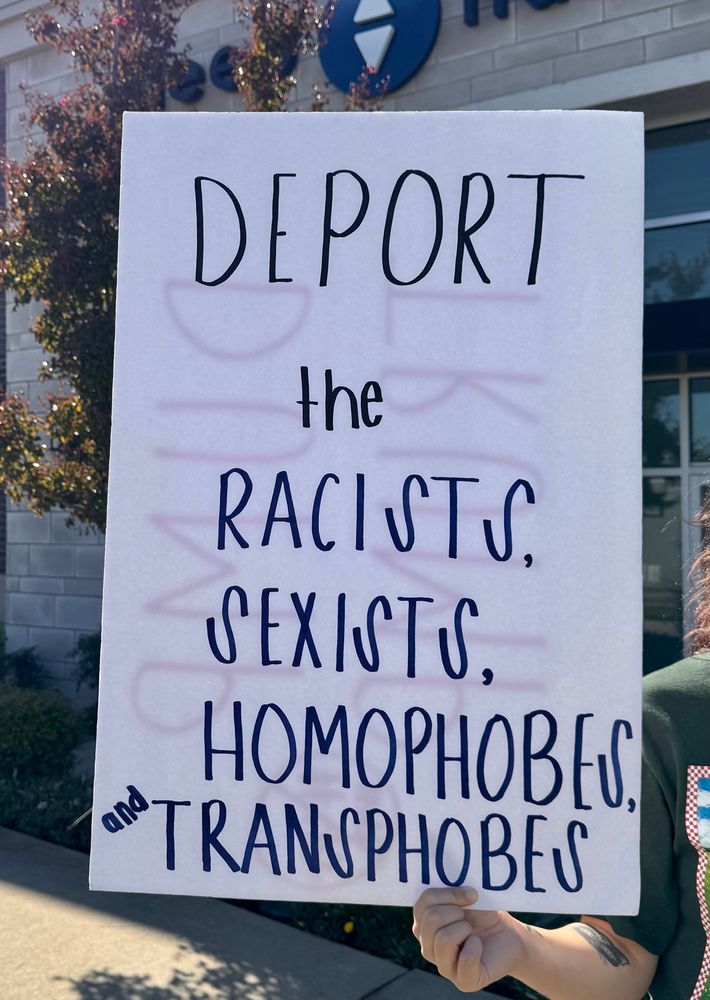 DEPORT
the
RACISTS,
SEXISTS,
HOMOPHOBES,
and TRANSPHOBES